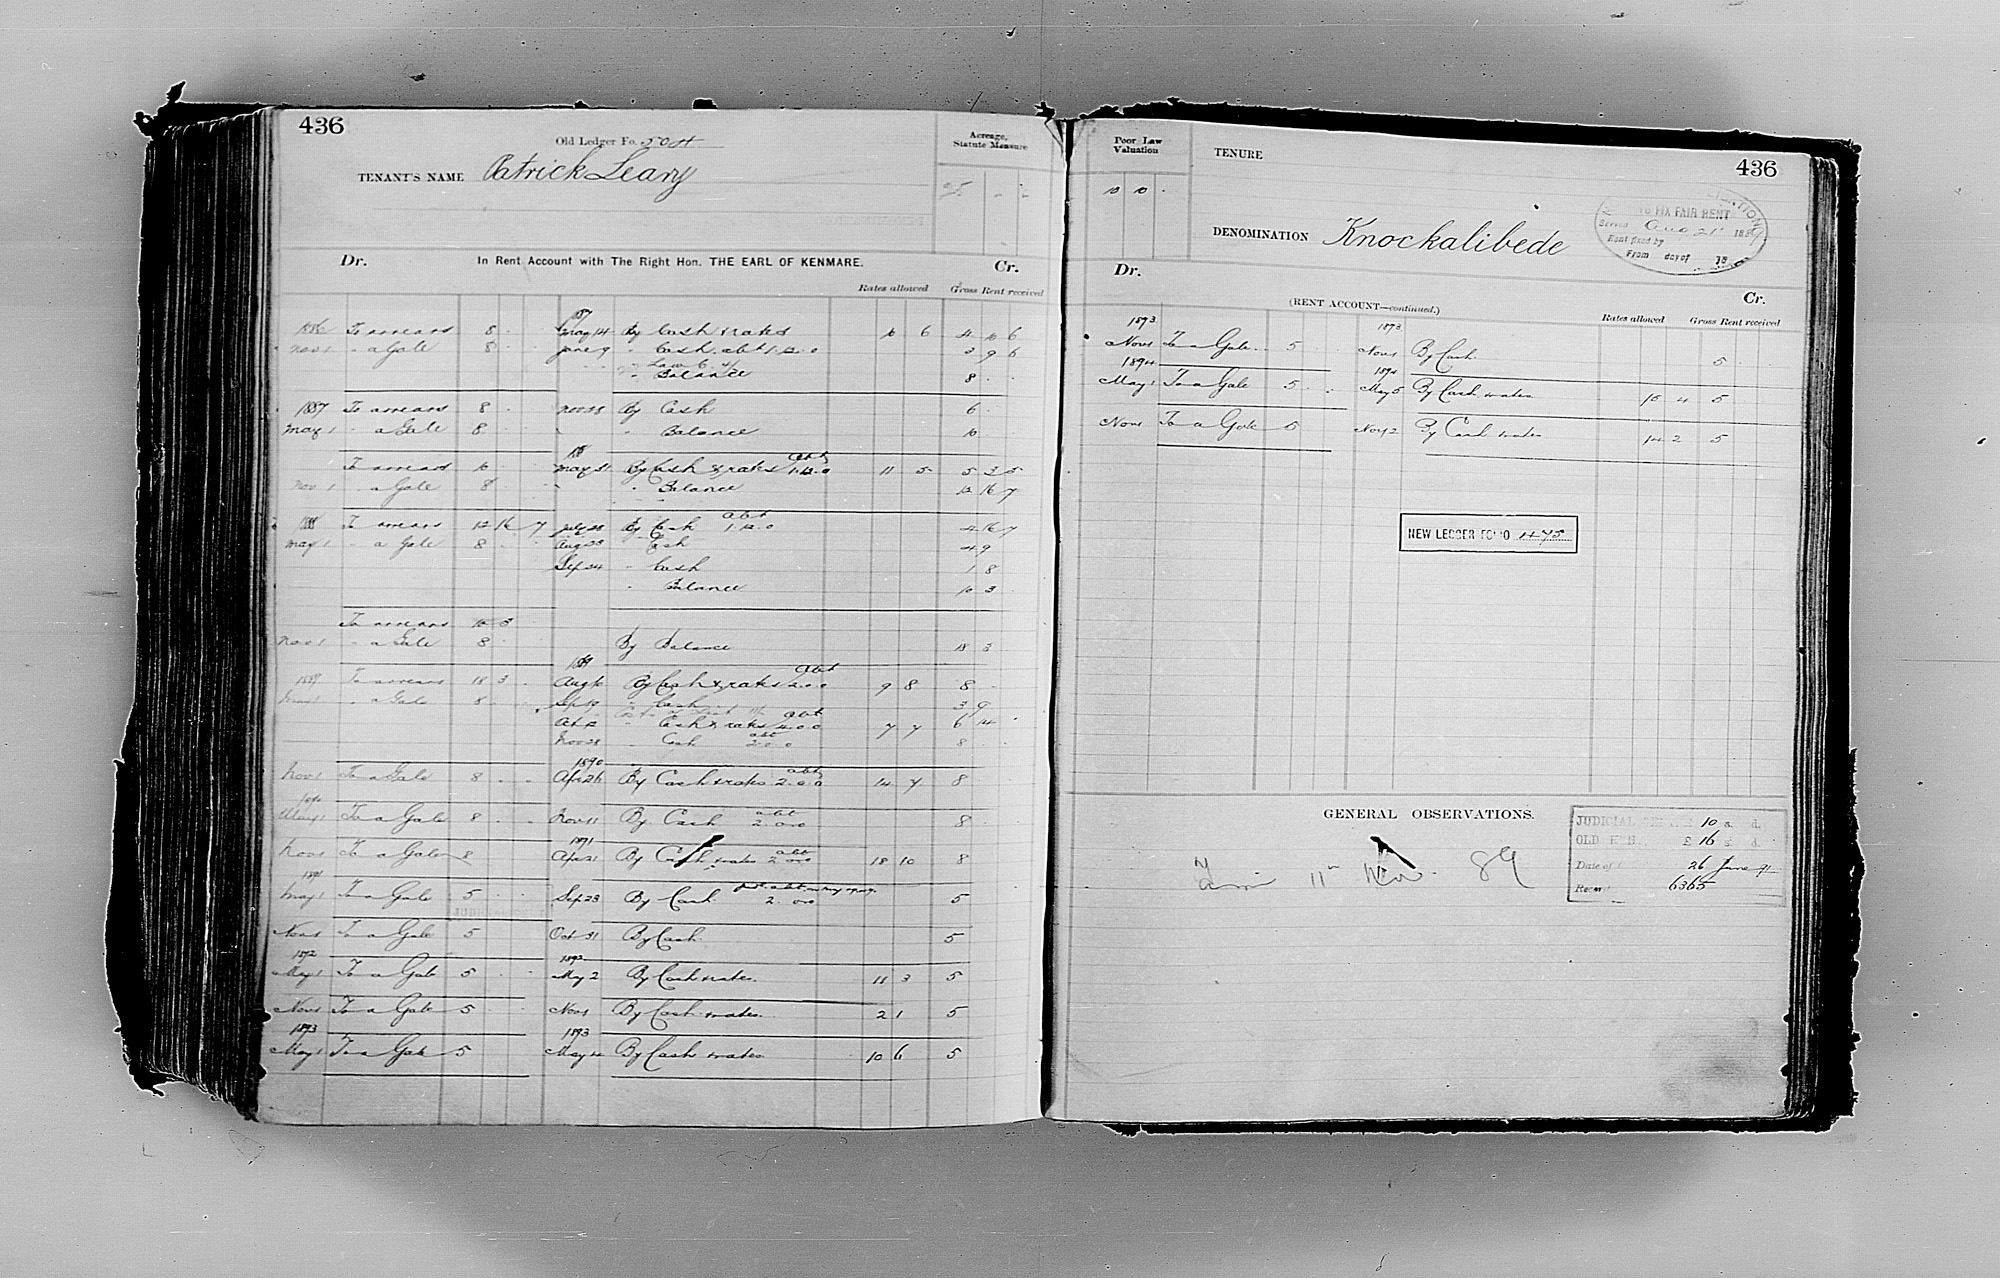 436
Old Ledger Fo. 504
TENANT'S NAME Patrick Leary
Acreage, Statute Measure
25 - -
Dr. In Rent Account with The Right Hon. THE EARL OF KENMARE. Cr.
Rates allowed Gross Rent received
1886 To arrears 8 May 14 By Cash & rates 10 6 4 10 6
Nov 1 " a Gale 8 June 9 " Cash abt 1.12.0 3 9 6
" Balance 8
1887 To arrears 8 Nov 28 By Cash 6
May 1 " a Gale 8 " Balance 10
abt
To arrears 10 May 31 By Cash & rates 1.12.0 11 5 5 3 5
Nov 1 " a Gale 8 " Balance 12 16 7
abt
1888 To arrears 12 16 7 July 28 By Cash 1.12.0 4 16 7
May 1 " a Gale 8 Aug 23 " Cash 4 9
Sep 24 " Cash 1 8
Balance 10 3
To arrears 10 3
Nov 1 " a Gale 8 By Balance 18 3
1889 abt
1889 To arrears 18 3 Aug 16 By Cash & rates 2.0.0 9 8 8
May 1 " a Gale 8 Sep 19 " Cash 3 9
abt
Oct 12 " Cash & rates 4.0.0 7 7 6 14
Nov 28 " Cash abt 2.0.0 8
1890 abt
Nov 1 To a Gale 8 Apr 26 By Cash & rates 2.0.0 14 7 8
1890 abt
May 1 To a Gale 8 Nov 11 By Cash 2.0.0 8
1891 abt
Nov 1 To a Gale 8 Apr 21 By Cash & rates 2.0.0 18 10 8
1891
May 1 To a Gale 5 Sep 23 By Cash 2.0.0 5
Nov 1 To a Gale 5 Oct 31 By Cash 5
1892 1892
May 1 To a Gale 5 May 2 By Cash & rates 11 3 5
Nov 1 To a Gale 5 Nov 1 By Cash & rates 2 1 5
1893 1893
May 1 To a Gale 5 May 4 By Cash & rates 10 6 5
Poor Law Valuation
10 10 .
TENURE
436
DENOMINATION Knockalibede
TO FIX FAIR RENT
Served Aug 21st 1889
Rent fixed by
From day of 18
Dr. (RENT ACCOUNT—continued.) Cr.
Rates allowed Gross Rent received
1893 1893
Nov 1 To a Gale 5 Nov 1 By Cash 5
1894 1894
May 1 To a Gale 5 May 5 By Cash & rates 15 4 5
Nov 1 To a Gale 5 Nov 2 By Cash & rates 14 2 5
NEW LEDGER FOLIO 475
GENERAL OBSERVATIONS.
11th Nov. 89
JUDICIAL £ 10 s. d.
OLD £ 16 s. d.
Date of 26 June 91
Record 6365